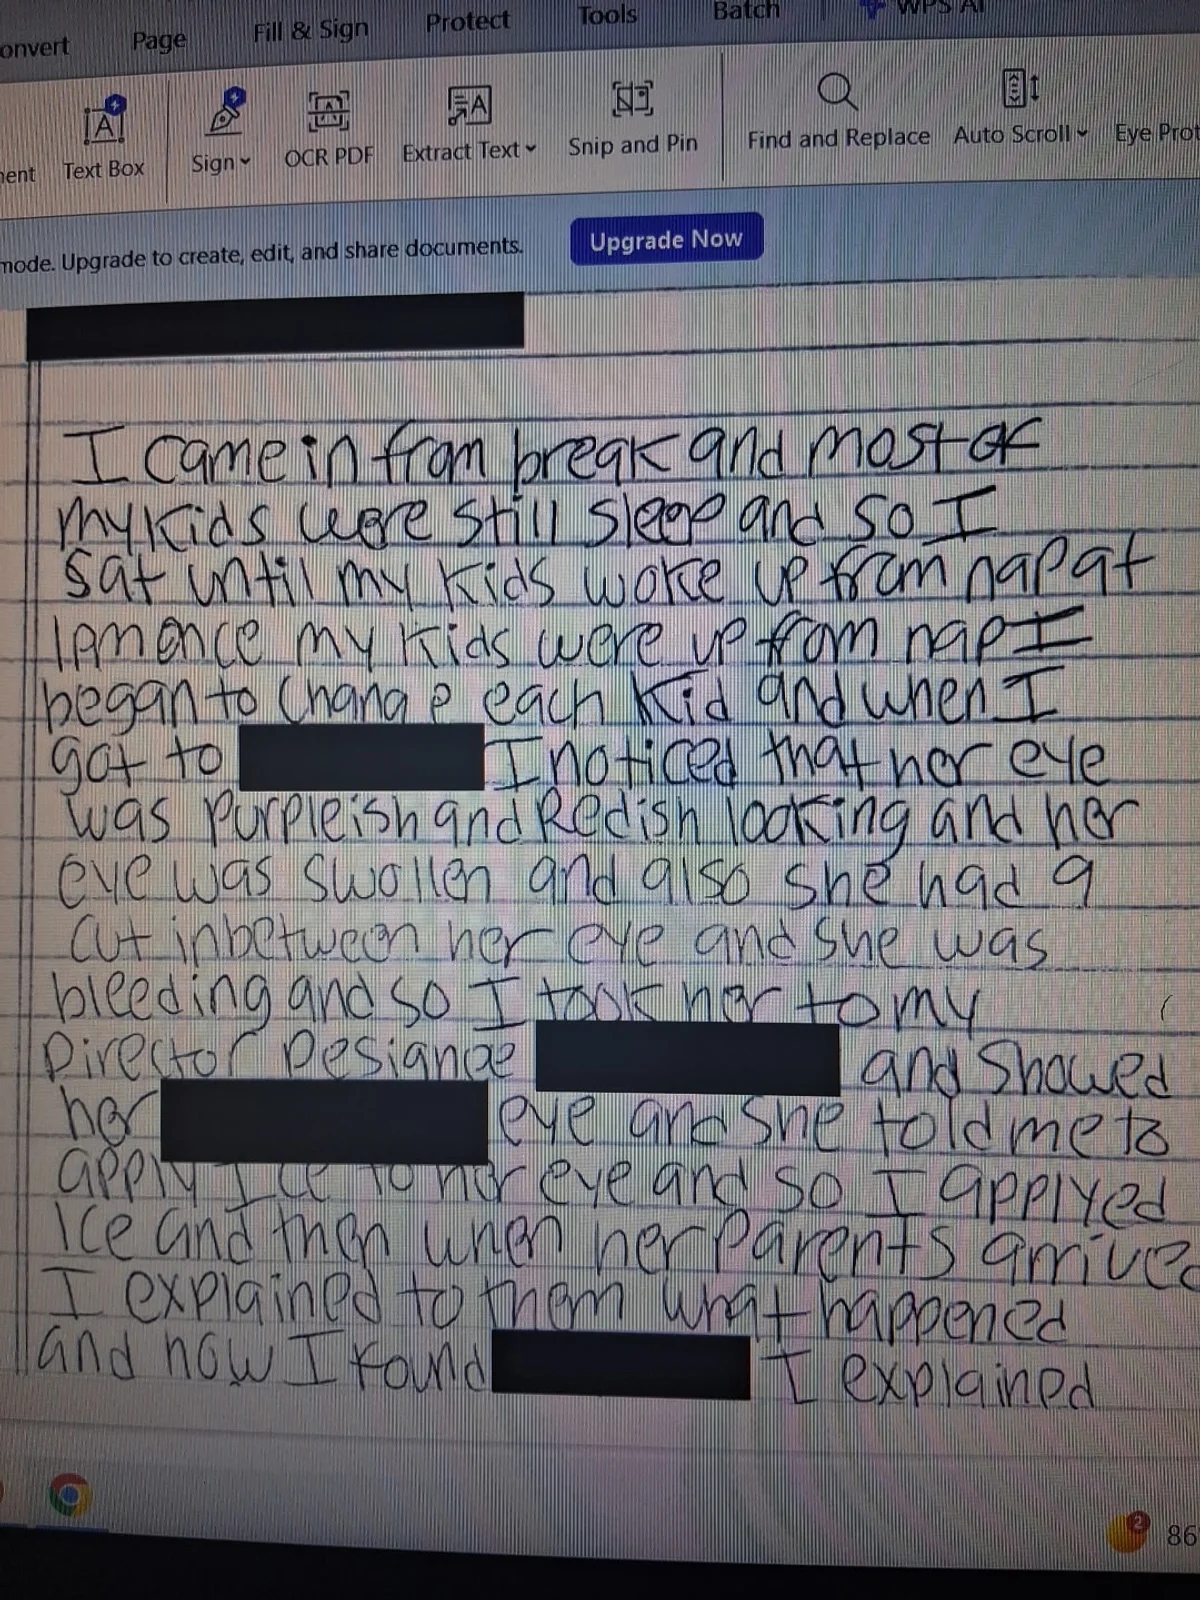 onvert Page Fill & Sign Protect Tools Batch WPS AI
ment Text Box Sign OCR PDF Extract Text Snip and Pin Find and Replace Auto Scroll Eye Pro
mode. Upgrade to create, edit, and share documents. Upgrade Now
I came in from break and most of
my kids were still sleep and so I
sat until my kids woke up from nap at
1pm once my kids were up from nap I
began to change each kid and when I
got to I noticed that her eye
was purpleish and Redish looking and her
eye was swollen and also she had a
cut inbetween her eye and she was
bleeding and so I took her to my
Director Designee and showed
her eye and she told me to
apply Ice to her eye and so I applyed
Ice and then when her parents arrived
I explained to them what happened
and how I found I explained
2 86